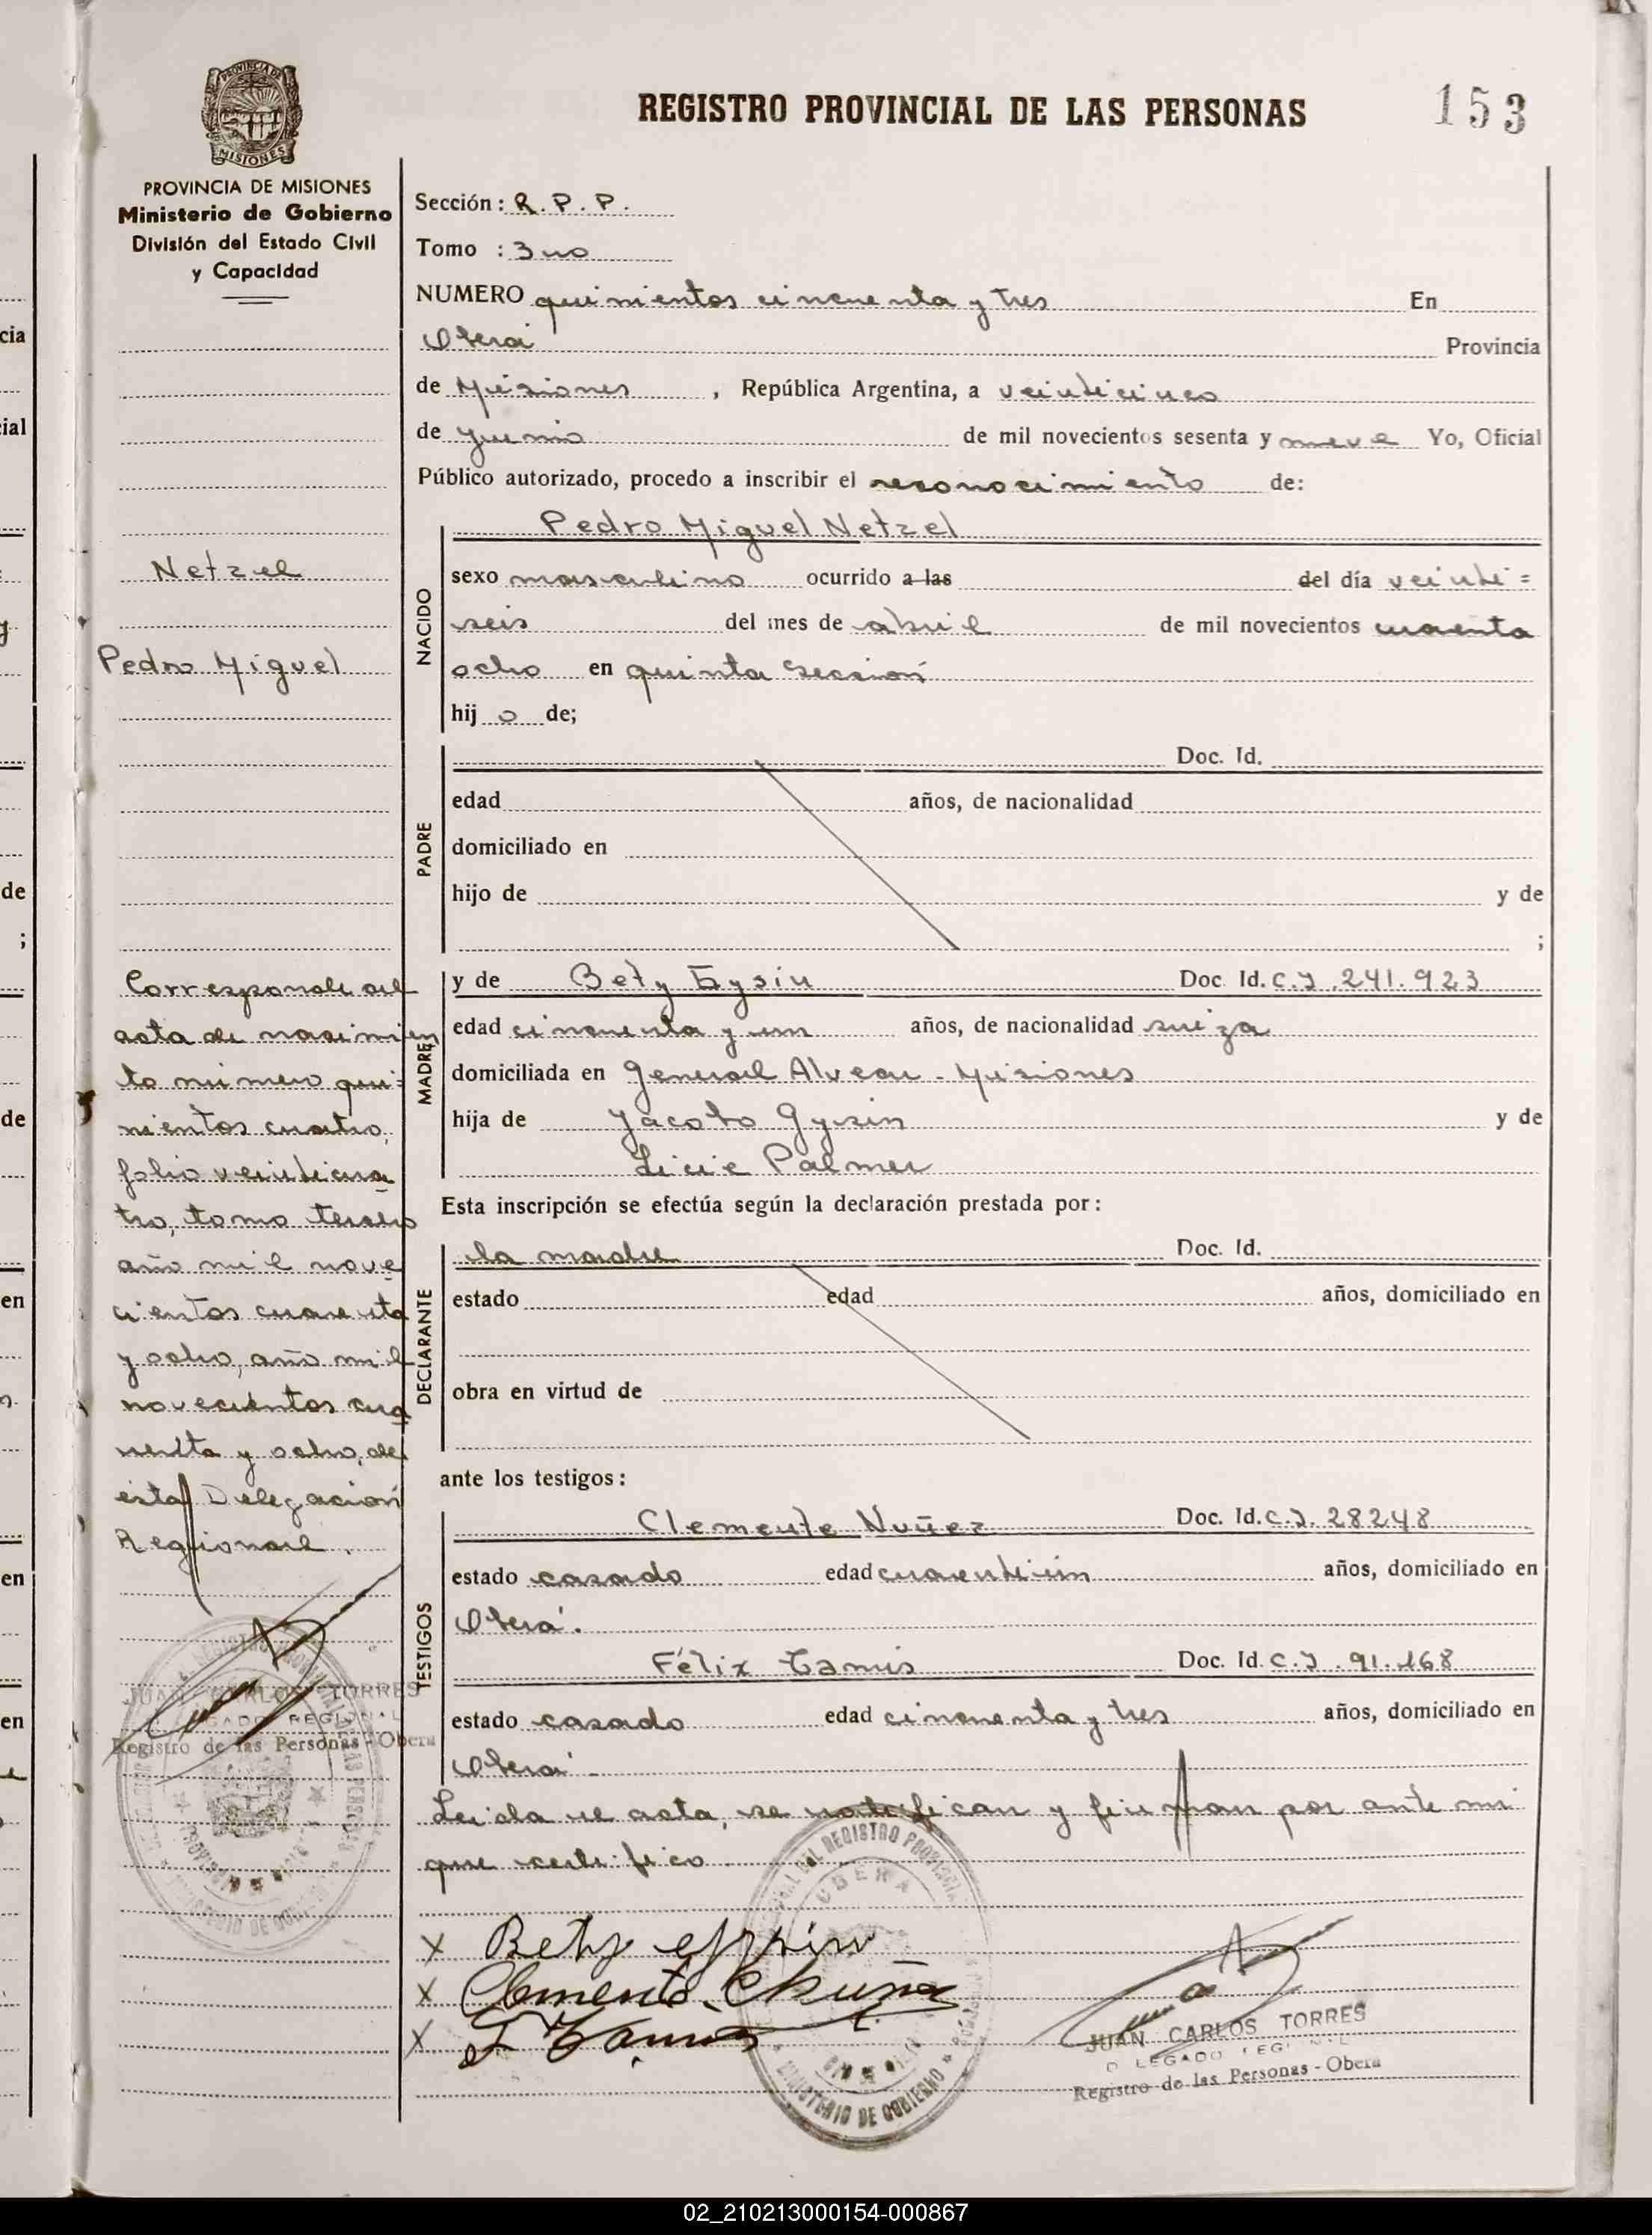 PROVINCIA DE
MISIONES
REGISTRO PROVINCIAL DE LAS PERSONAS
153
PROVINCIA DE MISIONES
Ministerio de Gobierno
División del Estado Civil
y Capacidad
Netzel
Pedro Miguel
Corresponde al
acta de nacimien
to número qui=
nientos cuatro,
folio veinticua
tro, tomo tercero
año mil nove
cientos cuarenta
y ocho, año mil
novecientos cua
renta y ocho, de
esta Delegación
Regional.
JUAN CARLOS TORRES
DELEGADO REGIONAL
Registro de las Personas - Obera
Sección: R.P.P.
Tomo : 3 uo
NUMERO quinientos cincuenta y tres En
Oberá Provincia
de Misiones , República Argentina, a veinticinco
de junio de mil novecientos sesenta y nueve Yo, Oficial
Público autorizado, procedo a inscribir el reconocimiento de:
NACIDO
Pedro Miguel Netzel
sexo masculino ocurrido a las del día veinti=
seis del mes de abril de mil novecientos cuarenta
ocho en quinta sección
hij o de;
PADRE
Doc. Id.
edad años, de nacionalidad
domiciliado en
hijo de y de
;
MADRE
y de Bety Gysin Doc. Id. C.I. 241.923
edad cincuenta y un años, de nacionalidad suiza
domiciliada en General Alvear - Misiones
hija de Jacobo Gysin y de
Licie Palmer
Esta inscripción se efectúa según la declaración prestada por:
DECLARANTE
la madre Doc. Id.
estado edad años, domiciliado en
obra en virtud de
ante los testigos:
TESTIGOS
Clemente Nuñez Doc. Id. C.I. 28248
estado casado edad cuarentiún años, domiciliado en
Oberá.
Félix Tamis Doc. Id. C.I. 91.168
estado casado edad cincuenta y tres años, domiciliado en
Oberá -
Leída el acta, se ratifican y firman por ante mi
que certifico
X Bety Gysin
X Clemente Nuñez
X F Tamis
JUAN CARLOS TORRES
DELEGADO REGIONAL
Registro de las Personas - Obera
OBERA
MINISTERIO DE GOBIERNO
02_210213000154-000867